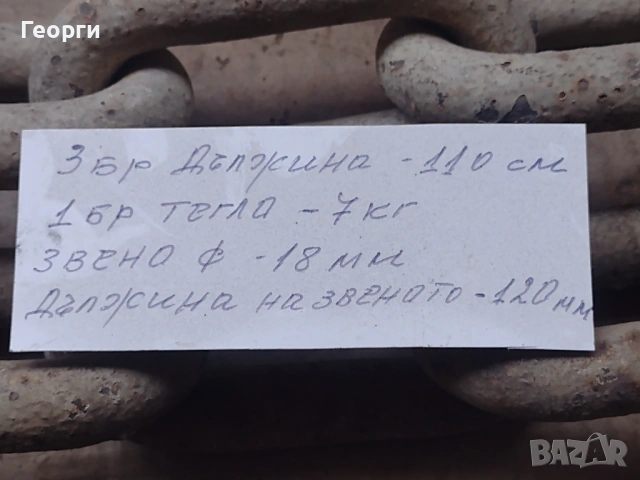 Георги
3 бр Дължина - 110 см
1 бр тегла - 7 кг
звено ф - 18 мм
Дължина на звеното - 120 мм
BAZAR